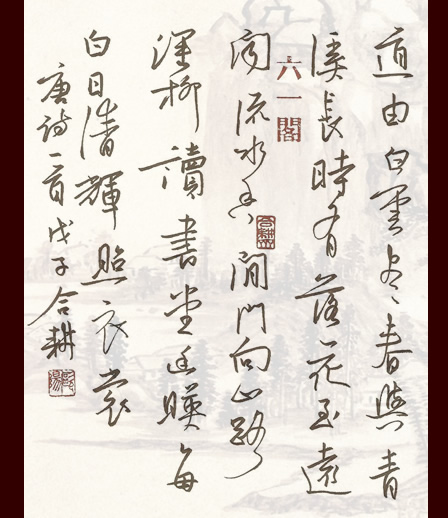 道由白雲盡春與青
溪長時有落花至遠
六一閣
流水香閒門向山路
深柳讀書堂幽暎每
白日清輝照衣裳
唐詩一首戊子合耕